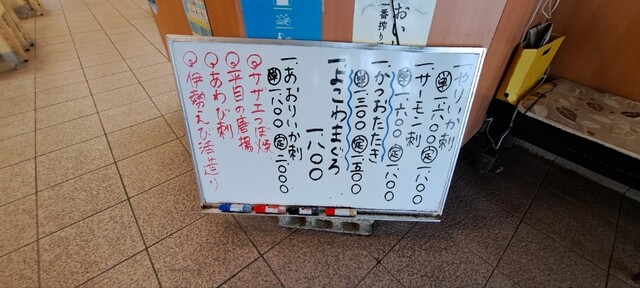 一番搾り
一.やりいか刺
㊥一.六〇〇 ㊣一.八〇〇
一.サーモン刺
一.かつおたたき
㊥一.三〇〇 ㊣一.五〇〇
一.よこわまぐろ
一.八〇〇
一.あおりいか刺
一.八〇〇 ㊣二.〇〇〇
サザエつぼ焼
平目の唐揚
あわび刺
伊勢えび活造り